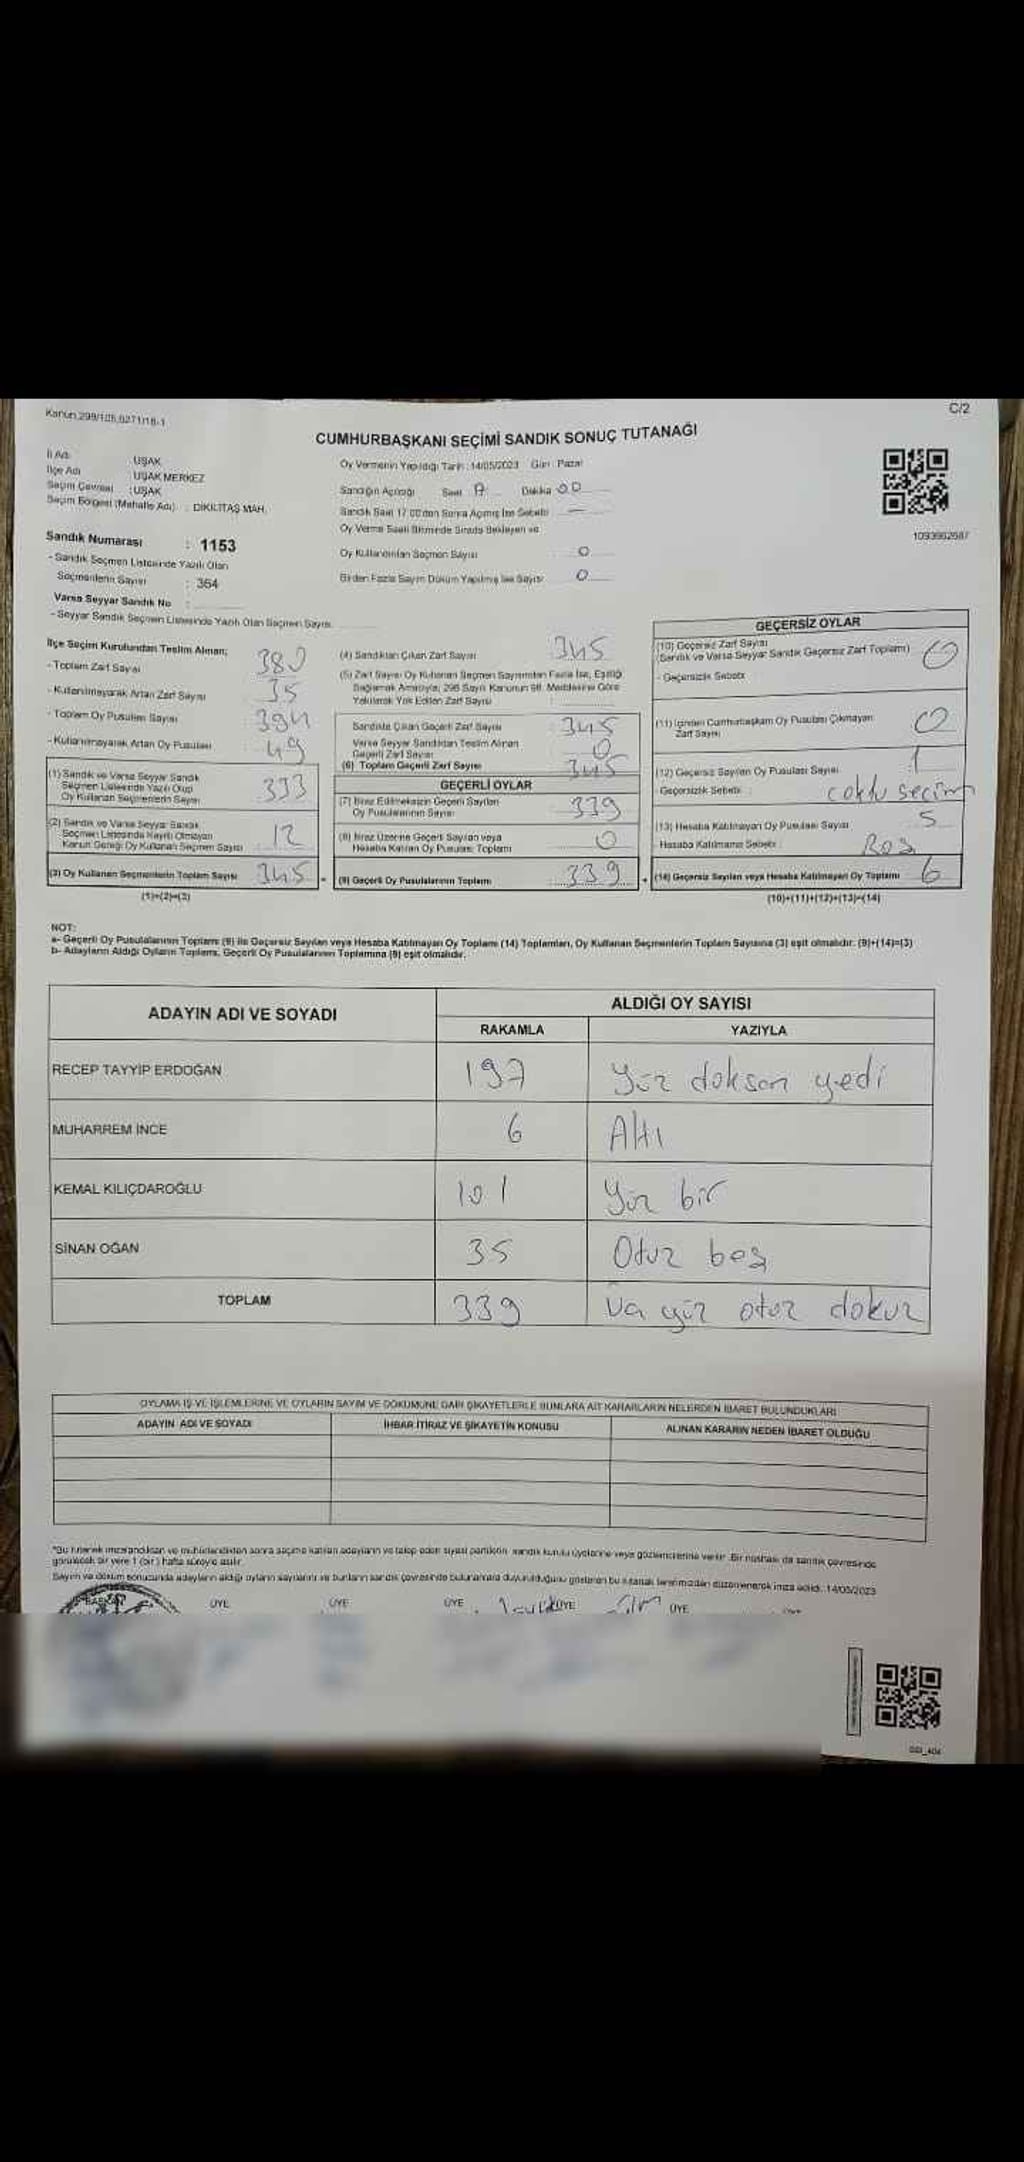 Kanun,298/105,6271/18-1
C/2
CUMHURBAŞKANI SEÇİMİ SANDIK SONUÇ TUTANAĞI
İl Adı : UŞAK
İlçe Adı : UŞAK MERKEZ
Seçim Çevresi : UŞAK
Seçim Bölgesi (Mahalle Adı) : DİKİLİTAŞ MAH.
Oy Vermenin Yapıldığı Tarih : 14/05/2023 Gün : Pazar
Sandığın Açıldığı Saat 17 Dakika 00
Sandık Saat 17:00'den Sonra Açılmış İse Sebebi : —
Oy Verme Saati Bitiminde Sırada Bekleyen ve
Oy Kullandırılan Seçmen Sayısı : 0
Birden Fazla Sayım Döküm Yapılmış İse Sayısı : 0
1093962687
Sandık Numarası : 1153
- Sandık Seçmen Listesinde Yazılı Olan
Seçmenlerin Sayısı : 364
Varsa Seyyar Sandık No :
- Seyyar Sandık Seçmen Listesinde Yazılı Olan Seçmen Sayısı
İlçe Seçim Kurulundan Teslim Alınan;
- Toplam Zarf Sayısı 380
- Kullanılmayarak Artan Zarf Sayısı 35
- Toplam Oy Pusulası Sayısı 394
- Kullanılmayarak Artan Oy Pusulası 49
(1) Sandık ve Varsa Seyyar Sandık
Seçmen Listesinde Yazılı Olup
Oy Kullanan Seçmenlerin Sayısı 333
(2) Sandık ve Varsa Seyyar Sandık
Seçmen Listesinde Kayıtlı Olmayan
Kanun Gereği Oy Kullanan Seçmen Sayısı 12
(3) Oy Kullanan Seçmenlerin Toplam Sayısı 345 =
(1)+(2)=(3)
(4) Sandıktan Çıkan Zarf Sayısı 345
(5) Zarf Sayısı Oy Kullanan Seçmen Sayısından Fazla İse, Eşitliği
Sağlamak Amacıyla, 298 Sayılı Kanunun 98. Maddesine Göre
Yakılarak Yok Edilen Zarf Sayısı
Sandıkta Çıkan Geçerli Zarf Sayısı 345
Varsa Seyyar Sandıktan Teslim Alınan
Geçerli Zarf Sayısı 0
(6) Toplam Geçerli Zarf Sayısı 345
GEÇERLİ OYLAR
(7) İtiraz Edilmeksizin Geçerli Sayılan
Oy Pusulalarının Sayısı 339
(8) İtiraz Üzerine Geçerli Sayılan veya
Hesaba Katılan Oy Pusulası Toplamı 0
(9) Geçerli Oy Pusulalarının Toplamı 339 +
GEÇERSİZ OYLAR
(10) Geçersiz Zarf Sayısı
(Sandık ve Varsa Seyyar Sandık Geçersiz Zarf Toplamı) 0
- Geçersizlik Sebebi :
(11) İçinden Cumhurbaşkanı Oy Pusulası Çıkmayan
Zarf Sayısı 0
(12) Geçersiz Sayılan Oy Pusulası Sayısı 1
Geçersizlik Sebebi : çoklu seçim
(13) Hesaba Katılmayan Oy Pusulası Sayısı 5
Hesaba Katılmama Sebebi : Boş
(14) Geçersiz Sayılan veya Hesaba Katılmayan Oy Toplamı 6
(10)+(11)+(12)+(13)=(14)
NOT:
a- Geçerli Oy Pusulalarının Toplamı (9) ile Geçersiz Sayılan veya Hesaba Katılmayan Oy Toplamı (14) Toplamları, Oy Kullanan Seçmenlerin Toplam Sayısına (3) eşit olmalıdır. (9)+(14)=(3)
b- Adayların Aldığı Oyların Toplamı, Geçerli Oy Pusulalarının Toplamına (9) eşit olmalıdır.
ADAYIN ADI VE SOYADI
ALDIĞI OY SAYISI
RAKAMLA YAZIYLA
RECEP TAYYİP ERDOĞAN 197 Yüz doksan yedi
MUHARREM İNCE 6 Altı
KEMAL KILIÇDAROĞLU 101 Yüz bir
SİNAN OĞAN 35 Otuz beş
TOPLAM 339 Üç yüz otuz dokuz
OYLAMA İŞ VE İŞLEMLERİNE VE OYLARIN SAYIM VE DÖKÜMÜNE DAİR ŞİKAYETLERLE BUNLARA AİT KARARLARIN NELERDEN İBARET BULUNDUKLARI
ADAYIN ADI VE SOYADI İHBAR İTİRAZ VE ŞİKAYETİN KONUSU ALINAN KARARIN NEDEN İBARET OLDUĞU
"Bu tutanak imzalandıktan ve mühürlendikten sonra seçime katılan adayların ve talep eden siyasi partilerin sandık kurulu üyelerine veya gözlemcilerine verilir. Bir nüshası da sandık çevresinde
görülecek bir yere 1 (bir) hafta süreyle asılır.
Sayım ve döküm sonucunda adayların aldığı oyların sayılarını ve bunların sandık çevresinde bulunanlara duyurulduğunu gösteren bu tutanak tarafımızdan düzenlenerek imza edildi. 14/05/2023
BAŞKAN ÜYE ÜYE ÜYE ÜYE ÜYE ÜYE